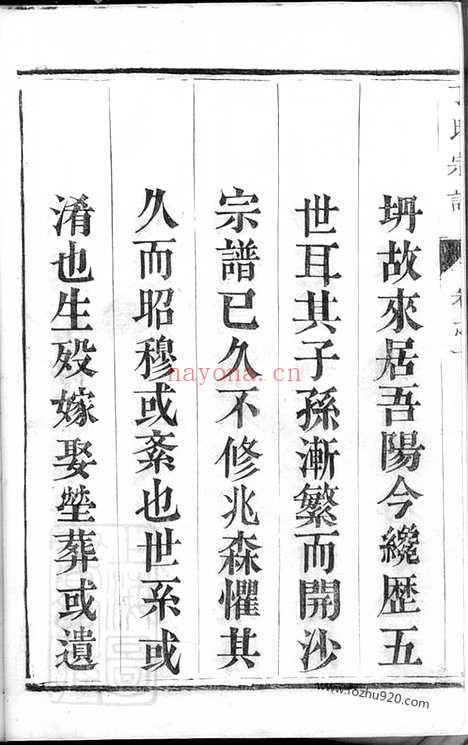 坍故來居吾陽今纔歴五
世耳其子孫漸繁而開沙
宗譜已久不修兆森懼其
久而昭穆或紊也世系或
淆也生殁嫁娶塋葬或遺
氏宗譜
nayona.cn
www.rozhu920.com